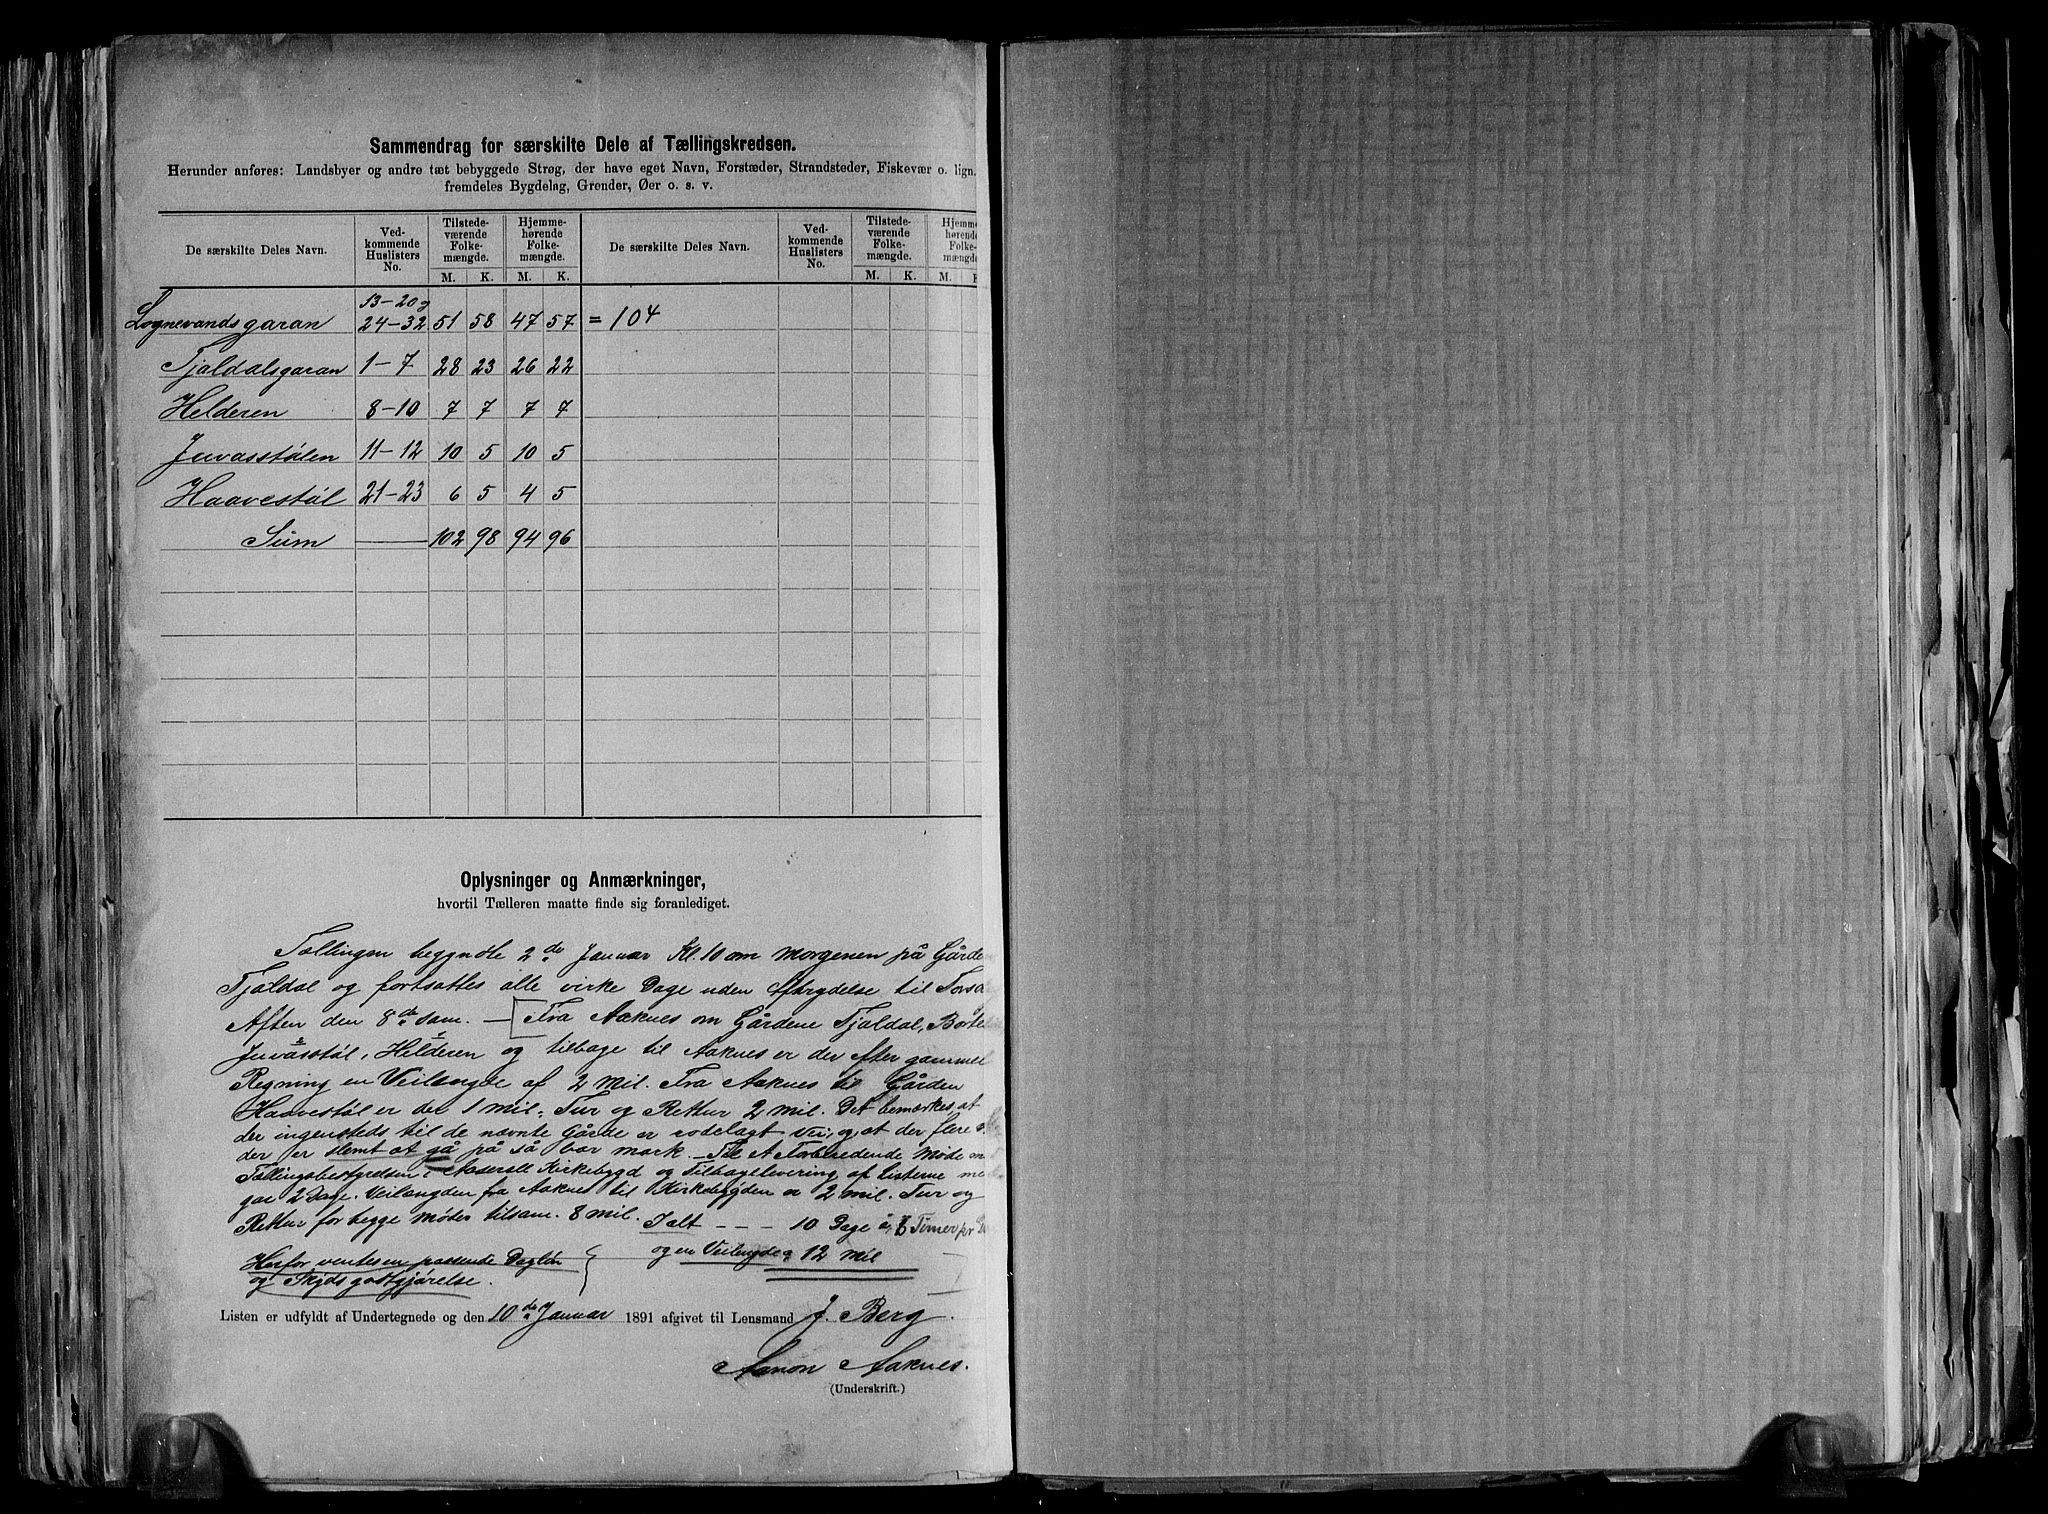 Sammendrag for særskilte Dele af Tællingskredsen.
Herunder anføres: Landsbyer og andre tæt bebyggede Strøg, der have eget Navn, Forstæder, Strandsteder, Fiskevær o. lign.
fremdeles Bygdelag, Grender, Øer o. s. v.
De særskilte Deles Navn. Vedkommende Huslisters No. Tilstedeværende Folkemængde. M. K. Hjemmehørende Folkemængde. M. K. De særskilte Deles Navn. Vedkommende Huslisters No. Tilstedeværende Folkemængde. M. K. Hjemmehørende Folkemængde. M.
Lognevandsgaran 13-20 og 24-32 51 58 47 57 = 104
Tjaldalsgaran 1-7 28 23 26 22
Helderen 8-10 7 7 7 7
Juvasstølen 11-12 10 5 10 5
Haavestøl 21-23 6 5 4 5
Sum 102 98 94 96
Oplysninger og Anmærkninger,
hvortil Tælleren maatte finde sig foranlediget.
Tællingen begynte 2de Januar Kl. 10 om Morgenen på
Tjaldal og fortsattes alle virke Dage uden Afbrydelse til
Aften den 8de sam. – Fra Aaknes om Gårdene Tjaldal,
Juvasstøl, Helderen og tilbage til Aaknes er der efter gammel
Regning en Veilængde af 2 Mil. Fra Aaknes til Gården
Haavestøl er der 1 mil. Tur og Rettur 2 mil. Det bemærkes, at
der ingensteds til de nævnte Gårde er rodelagt Vei, og at der flere
der er slemt at gå på så bar mark. – Til A Forberedende Møde
Tællingsbestyrelsen i Aaseral Kirkebygd og Tilbagelevering af Listerne
2 Dage. Veilængden fra Aaknes til Kirkebygden er 2 mil. Tur og
Rettur for begge Møder tilsam. 8 mil. Ialt - - - 10 Dage à Timer pr
og en Veilengde 12 Mil
Herfor ventes en passende Dagløn
og Skydsgodtgjørelse.
Listen er udfyldt af Undertegnede og den 10de Januar 1891 afgivet til Lensmand J. Berg.
Aanon Aaknes.
(Underskrift.)